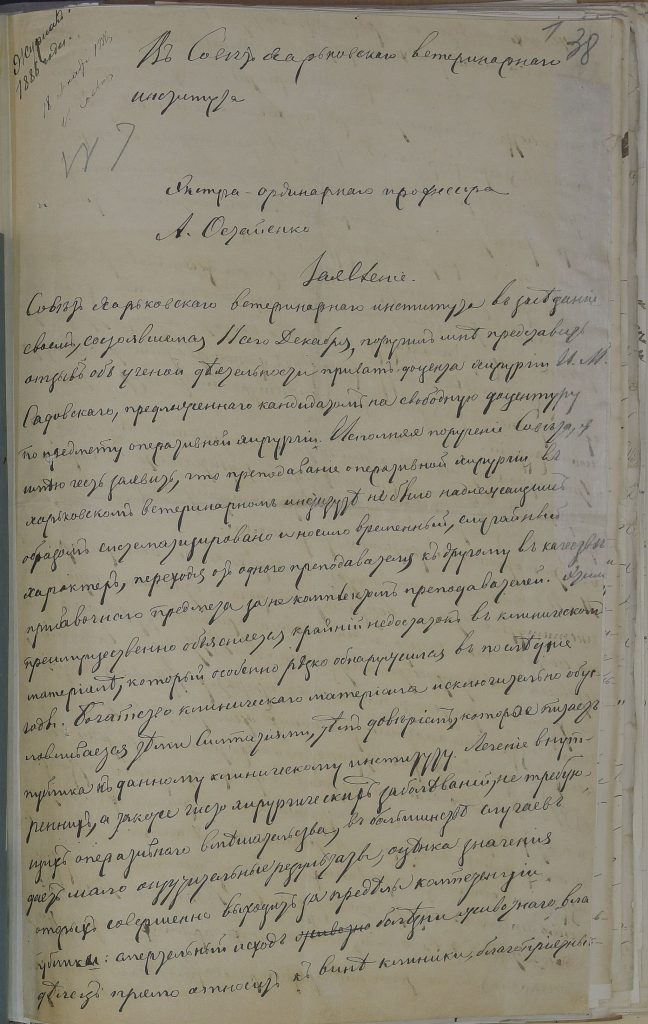 Журналъ
1886 года.
18 Декабря 1886
W 7
1 38
Въ Совѣтъ Харьковскаго ветеринарнаго
института
Экстра-ординарнаго профессора
А. Остапенко
Заявленіе.
Совѣтъ Харьковскаго ветеринарнаго института въ засѣданіи
своемъ, состоявшемся 11 сего Декабря, поручилъ мнѣ представить
отзывъ объ ученой дѣятельности приватъ-доцента хирургіи И. М.
Садовскаго, предложеннаго кандидатомъ на свободную доцентуру
по предмету оперативной хирургіи. Исполняя порученіе Совѣта, я
имѣю честь заявить, что преподаваніе оперативной хирургіи въ
харьковскомъ ветеринарномъ институтѣ не было надлежащимъ
образомъ систематизировано и носило временный, случайный
характеръ, переходя отъ одного преподавателя къ другому въ качествѣ
прибавочнаго предмета за не комплектомъ преподавателей. Этимъ
преимущественно объясняется крайній недостатокъ въ клиническомъ
матеріалѣ, который особенно рѣзко обнаружился въ послѣдніе
годы. Богатство клиническаго матеріала исключительно обус-
ловливается тѣми симпатіями, тѣмъ довѣріемъ, которое питаетъ
публика къ данному клиническому институту. Леченіе внут-
реннихъ, а также число хирургическихъ заболѣваній, не требую-
щихъ оперативнаго вмѣшательства, въ большинствѣ случаевъ
даетъ мало ощутительные результаты, оцѣнка значенія
которыхъ совершенно выходитъ за предѣлы компетенціи
публики: смертельный исходъ болѣзни животнаго вла-
дѣлецъ прямо относитъ къ винѣ клиники, благопріятный-